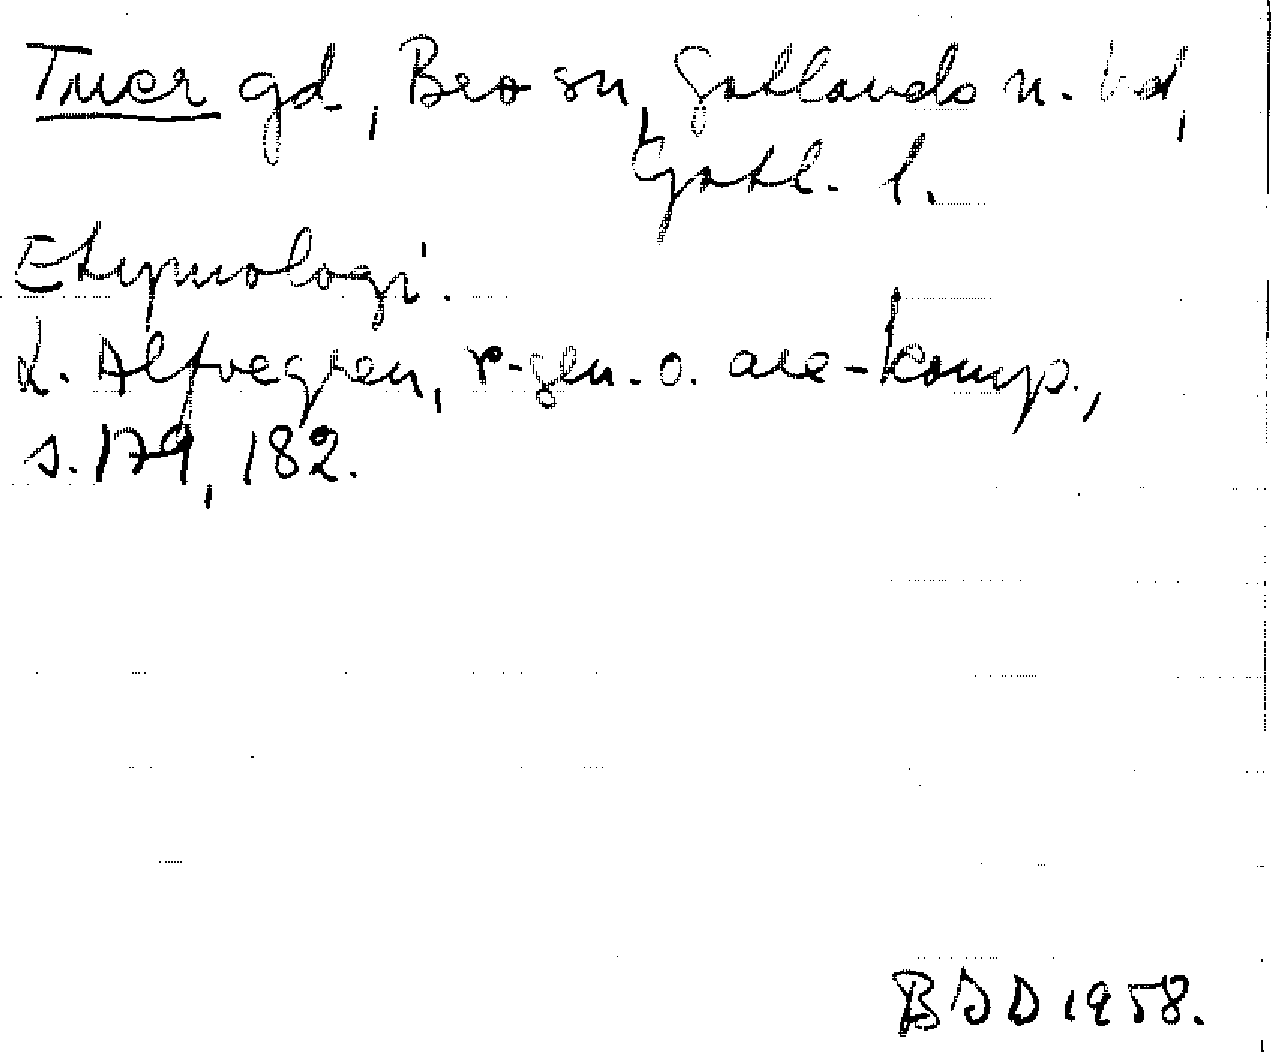 Tucer gd., Bro sn, Gotlands n. hd,
Gotl. l.
Etymologi.
L. Alfvegren, r-gen. o. are-komp.,
s. 179, 182.
BSD 1958.